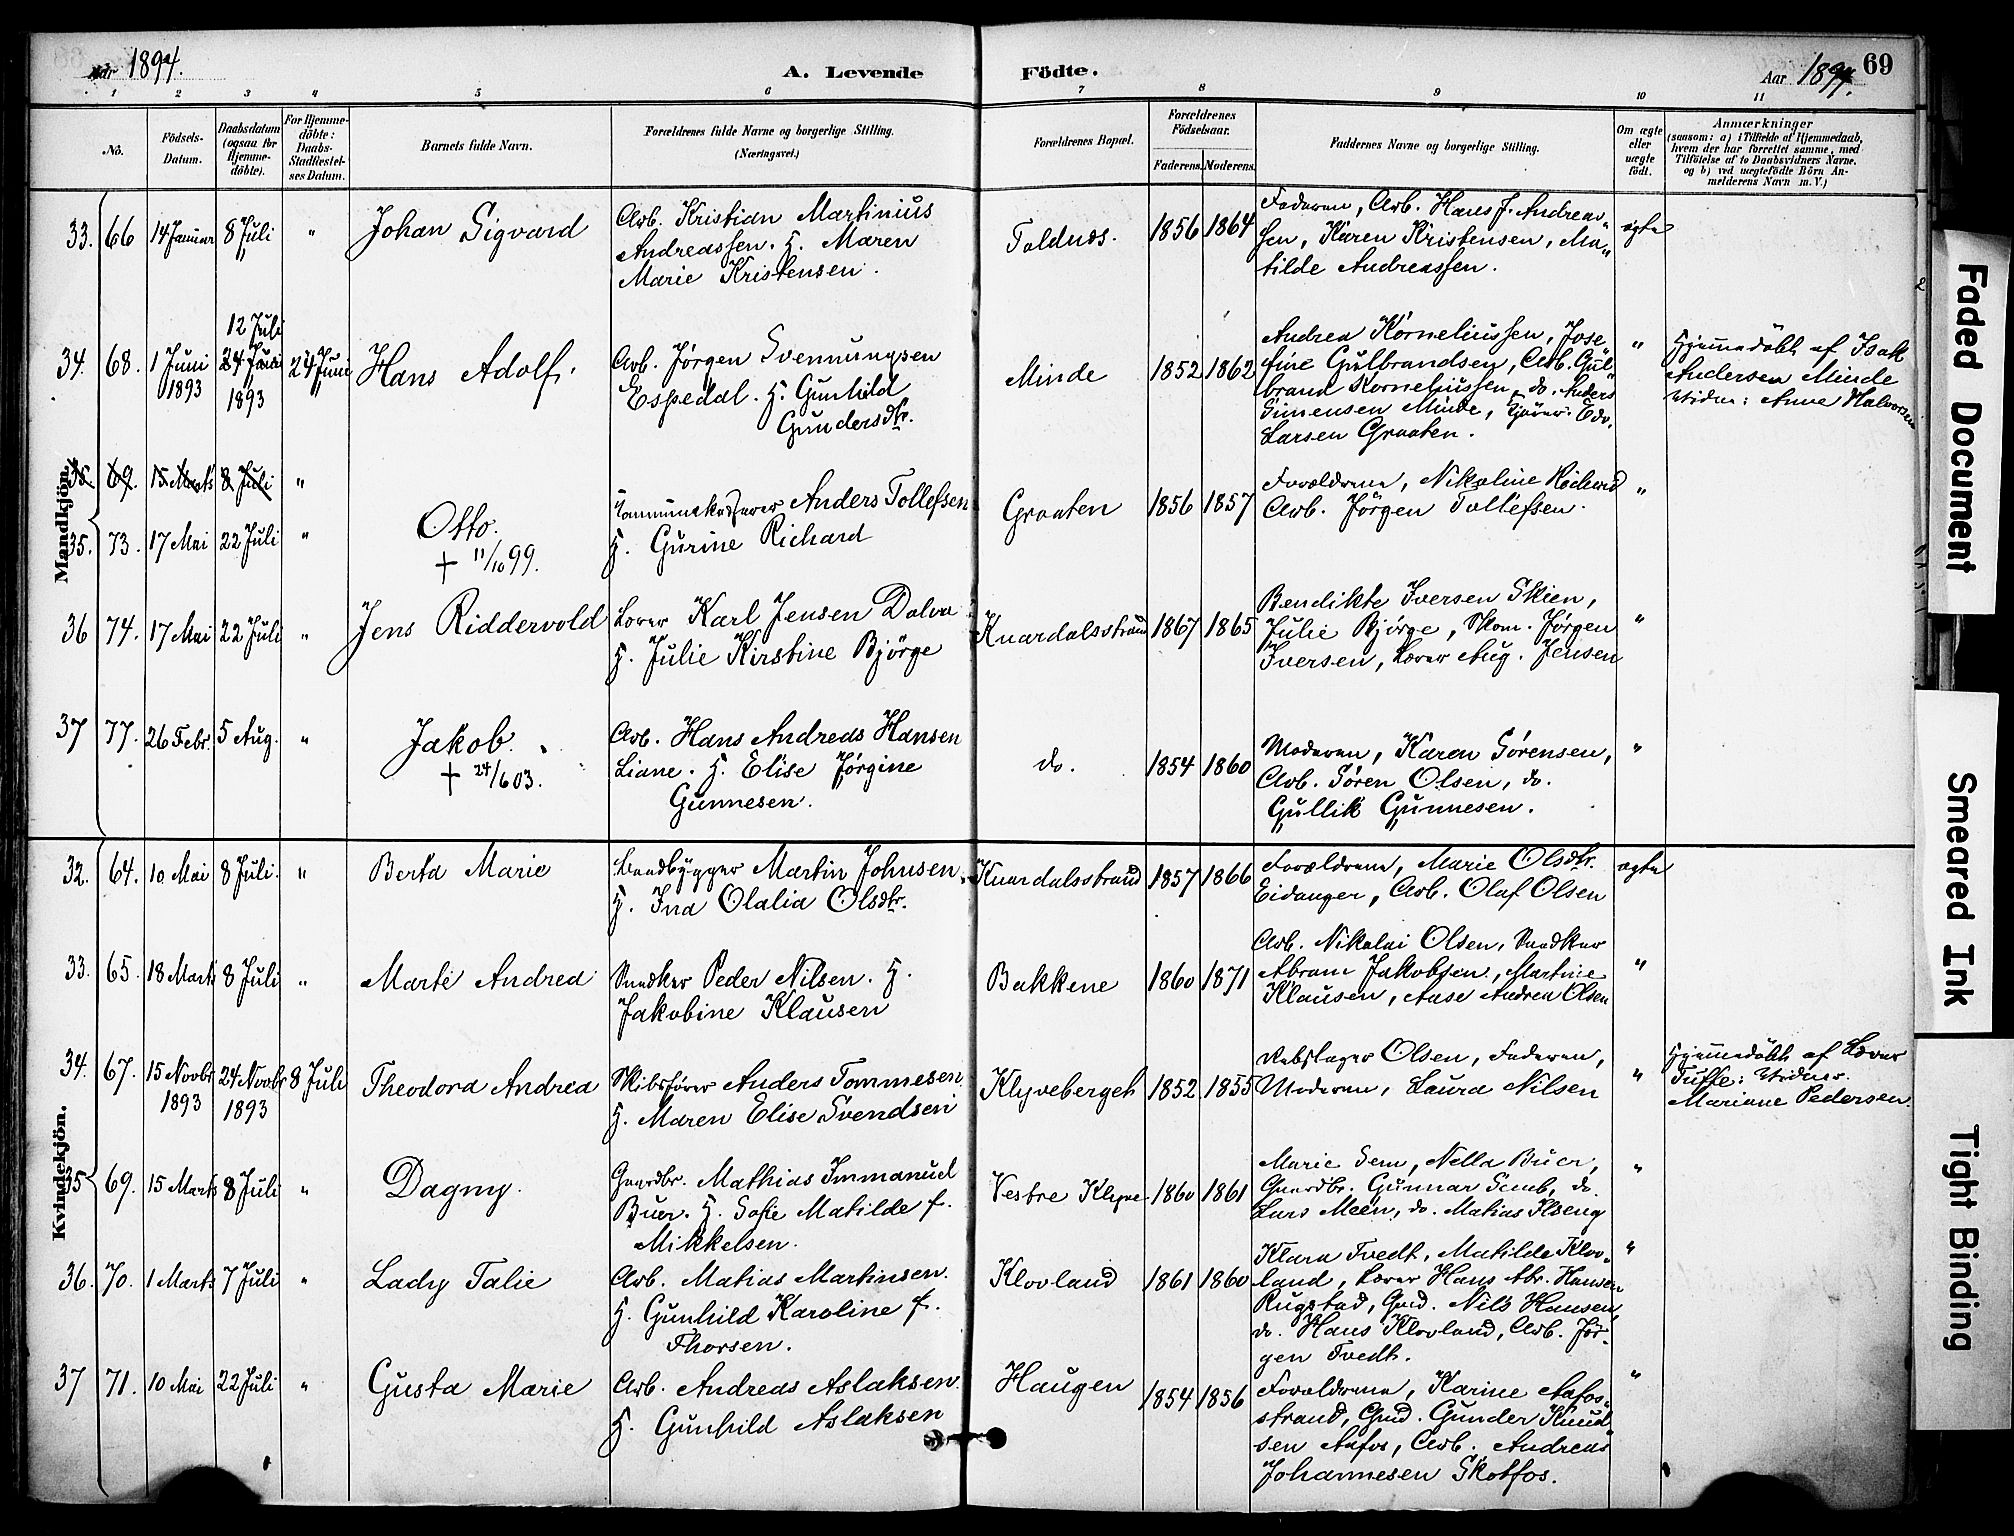 Aar 1894.
A. Levende
Födte.
Aar 1894.
69
1 2 3 4 5 6 7 8 9 10 11
No.
Födsels-
Datum.
Daabsdatum
(ogsaa for
Hjemme-
döbte).
For Hjemme-
döbte:
Daabs-
Stadfæstel-
ses Datum.
Barnets fulde Navn.
Forældrenes fulde Navne og borgerlige Stilling.
(Næringsvei.)
Forældrenes Bopæl.
Forældrenes
Födselsaar.
Faderens. Moderens.
Faddernes Navne og borgerlige Stilling.
Om ægte
eller
uægte
födt.
Anmærkninger
(saasom: a) i Tilfælde af Hjemmedaab,
hvem der har forrettet samme, med
Tilföielse af to Daabsvidners Navne,
og b) ved uægtefödte Börn An-
melderens Navn m. V.)
Mandkjön.
33. 66 14 Januar 8 Juli " Johan Sigvard
Arb. Kristian Martinius
Andreassen. H. Maren
Marie Kristensen.
Toldnes. 1856 1864
Faderen, Arb. Hans J. Andreas-
sen, Karen Kristensen, Ma-
tilde Andreassen.
ægte
34. 68. 1 Juni
1893
12 Juli
24 Juni
1893
24 Juni Hans Adolf.
Arb. Jørgen Svennungsen
Espedal. H. Gunhild
Gundersdtr.
Minde 1852 1862
Andrea Korneliussen, Jose-
fine Gulbrandsen, Arb. Gul-
brand Korneliussen, do. Anders
Simensen Minde, Edv.
Larsen Graaten.
"
Hjemmedöbt af Isak
Andersen Minde
Vidne: Anne Halvorsen
35. 69. 15 Marts 8 Juli "
35. 73. 17 Mai 22 Juli " Otto.
+ 11/10 99.
Anders Tollefsen
H. Gurine Richard
Graaten 1856 1857
Forældrene, Nikoline Richard
Arb. Jørgen Tollefsen.
"
36 74. 17 Mai 22 Juli " Jens Riddervold
Lærer Karl Jensen Dolva
H. Julie Kirstine Bjørge
Knardalsstrand 1867 1865
Bendikte Iversen Skien,
Julie Bjørge, Skom. Jørgen
Iversen, Lærer Aug. Jensen
"
37 77. 26 Febr. 5 Aug. " Jakob.
+ 24/6 03.
Arb. Hans Andreas Hansen
Liane. H. Elise Jørgine
Gunnesen.
do. 1854 1860
Moderen, Karen Sørensen,
Arb. Søren Olsen, do.
Gullik Gunnesen.
"
Kvindekjön.
32. 64. 10 Mai 8 Juli. " Berta Marie
Baadbygger Martin Johnsen
H. Ina Olalia Olsdtr.
Knardalsstrand 1857 1866
Forældrene, Marie Olsdtr.
Eidanger, Arb. Olaf Olsen
ægte
33. 65. 18 Marts 8 Juli " Marte Andrea
Snedker Peder Nilsen. H.
Jakobine Klausen
Bakkene 1860 1871
Arb. Nikolai Olsen, Snedker
Abram Jakobsen, Martine
Klausen, Aase Andrea Olsen
"
34. 67. 15 Novbr
1893
24 Novbr
1893
8 Juli Theodora Andrea
Skibsfører Anders Tommesen
H. Maren Elise Svendsen
Klyveberget 1852 1855
Rebslager Olsen, Faderen,
Moderen, Laura Nilsen
"
Hjemmedöbt af Lærer
Tuffe: Vidner.
Mariane Pedersen.
35 69. 15 Marts 8 Juli " Dagny.
Gaardbr. Mathias Immanuel
Buer. H. Sofie Matilde f.
Mikkelsen.
Vestre Klyve 1860 1861
Marie Sem, Nella Buer,
Gaardbr. Gunnar Sneb, do.
Lars Meen, do. Matias Ilseng
"
36. 70. 1 Marts 7 Juli " Lady Talie
Arb. Matias Martinsen.
H. Gunhild Karoline f.
Thorsen.
Klovland 1861 1860
Klara Tvedt, Matilde Klov-
land, Lærer Hans Abr. Hansen
Rugstad, Grd. Nils Hansen,
do. Hans Klovland, Arb. Jør-
gen Tvedt.
"
37 71. 10 Mai 22 Juli " Gusta Marie
Arb. Andreas Aslaksen.
H. Gunhild Aslaksen
Haugen 1854 1856
Forældrene, Karine Aafos-
strand, Grd. Gunder Knud-
sen Aafos, Arb. Andreas
Johannesen Skotfos.
"
Faded Document
Smeared Ink
Tight Binding